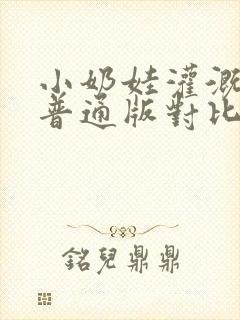 小奶娃灌溉
普通版對比
銘兒鼎鼎